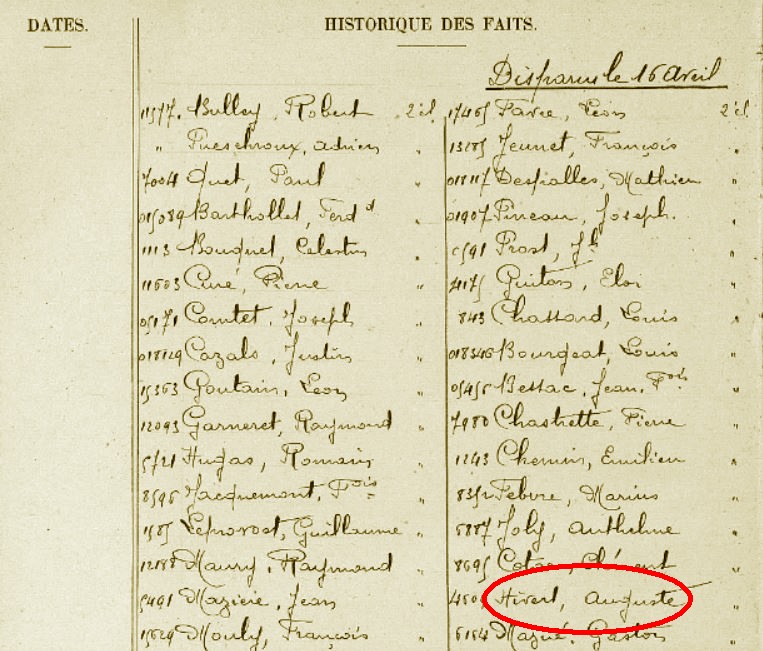 DATES.
HISTORIQUE DES FAITS.
Disparus le 16 avril
Robert 2e cl
" Adrien "
7004 Quet, Paul "
015089 Barthollet, Ferd d "
1113 Bouquet, Celestin "
11603 Curé, Pierre "
05171 Comtet, Joseph "
018129 Cazals, Justin "
15363 Goutain, Leon "
12093 Garneret, Raymond "
5721 Hugas, Romain "
8595 Jacquemont, Fois "
1585 Leprovost, Guillaume "
12188 Maury, Raymond "
5491 Mazière, Jean "
15629 Mouly, François "
17465 Favre, Léon 2e cl
13285 Jeunet, François "
018117 Mathieu "
01907 Pineau, Joseph. "
Prost, Jh "
4175 Guiton, Eloi "
843 Chassard, Louis "
018346 Bourgeat, Louis "
05455 Bessac, Jean, Fois "
7980 Chastrette, Pierre "
1243 Chemin, Emilien "
8352 Febvre, Marius "
6887 Joly, Anthelme "
8695 Clément "
Hivert, Auguste "
6164 Mazué, Gaston "